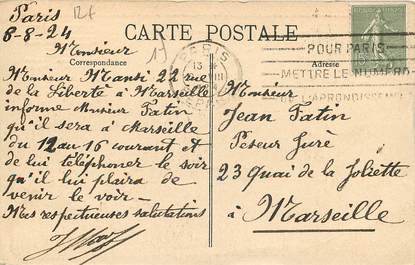 Paris
8-8-24
CARTE POSTALE
Monsieur
Correspondance
Adresse
PARIS
13
POUR PARIS
METTRE LE NUMERO
DE L'ARRONDISSEMENT
Monsieur Mansi 22 rue
de la Liberté à Marseille
informe Monsieur Fatin
qu'il sera à Marseille
du 12 au 16 courant et
de lui téléphoner le soir
qu'il lui plaira de
venir le voir -
Mes respectueuses salutations
Monsieur
Jean Fatin
Peseur Juré
23 Quai de la Joliette
à Marseille